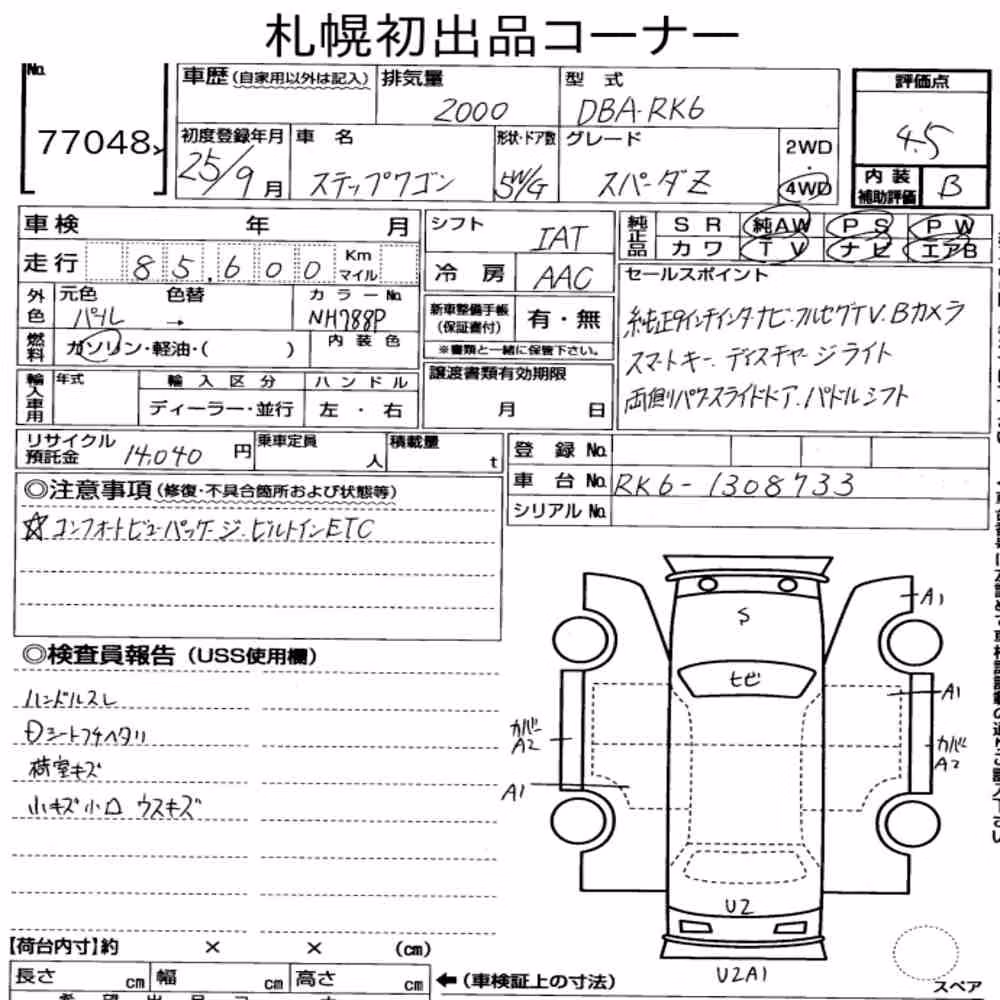 札幌初出品コーナー
No.
77048
車歴(自家用以外は記入)
排気量
2000
型 式
DBA-RK6
評価点
4.5
初度登録年月
25/9月
車 名
ステップワゴン
形状・ドア数
5W/G
グレード
スパーダZ
2WD
・
4WD
内装補助評価
B
車検 年 月
走行 85,600 Km マイル
シフト
IAT
冷 房
AAC
純正品
SR 純AW PS PW
カワ TV ナビ エアB
外色
元色 色替
パール →
カラーNo.
NH788P
新車整備手帳(保証書付)
有・無
※書類と一緒に保管下さい。
セールスポイント
純正9インチインターナビ・フルセグTV.Bカメラ
スマートキー.ディスチャージライト
両側パワースライドドア.パドルシフト
燃料
ガソリン・軽油・( )
内装色
輸入車用
年式
輸入区分
ディーラー・並行
ハンドル
左・右
譲渡書類有効期限
月 日
リサイクル預託金 14,040 円
乗車定員 人
積載量 t
登録No.
車台No. RK6-1308733
シリアルNo.
◎注意事項(修復・不具合箇所および状態等)
☆コンフォートビューパッケージ.ビルトインETC
◎検査員報告(USS使用欄)
ハンドルスレ
Dシートフチヘタリ
荷室キズ
小キズ小凹 ウスキズ
S
ヒビ
A1
A1
カバーA2
カバーA2
A1
U2
U2A1
スペア
【荷台内寸】約 × × (cm)
長さ cm 幅 cm 高さ cm
←(車検証上の寸法)